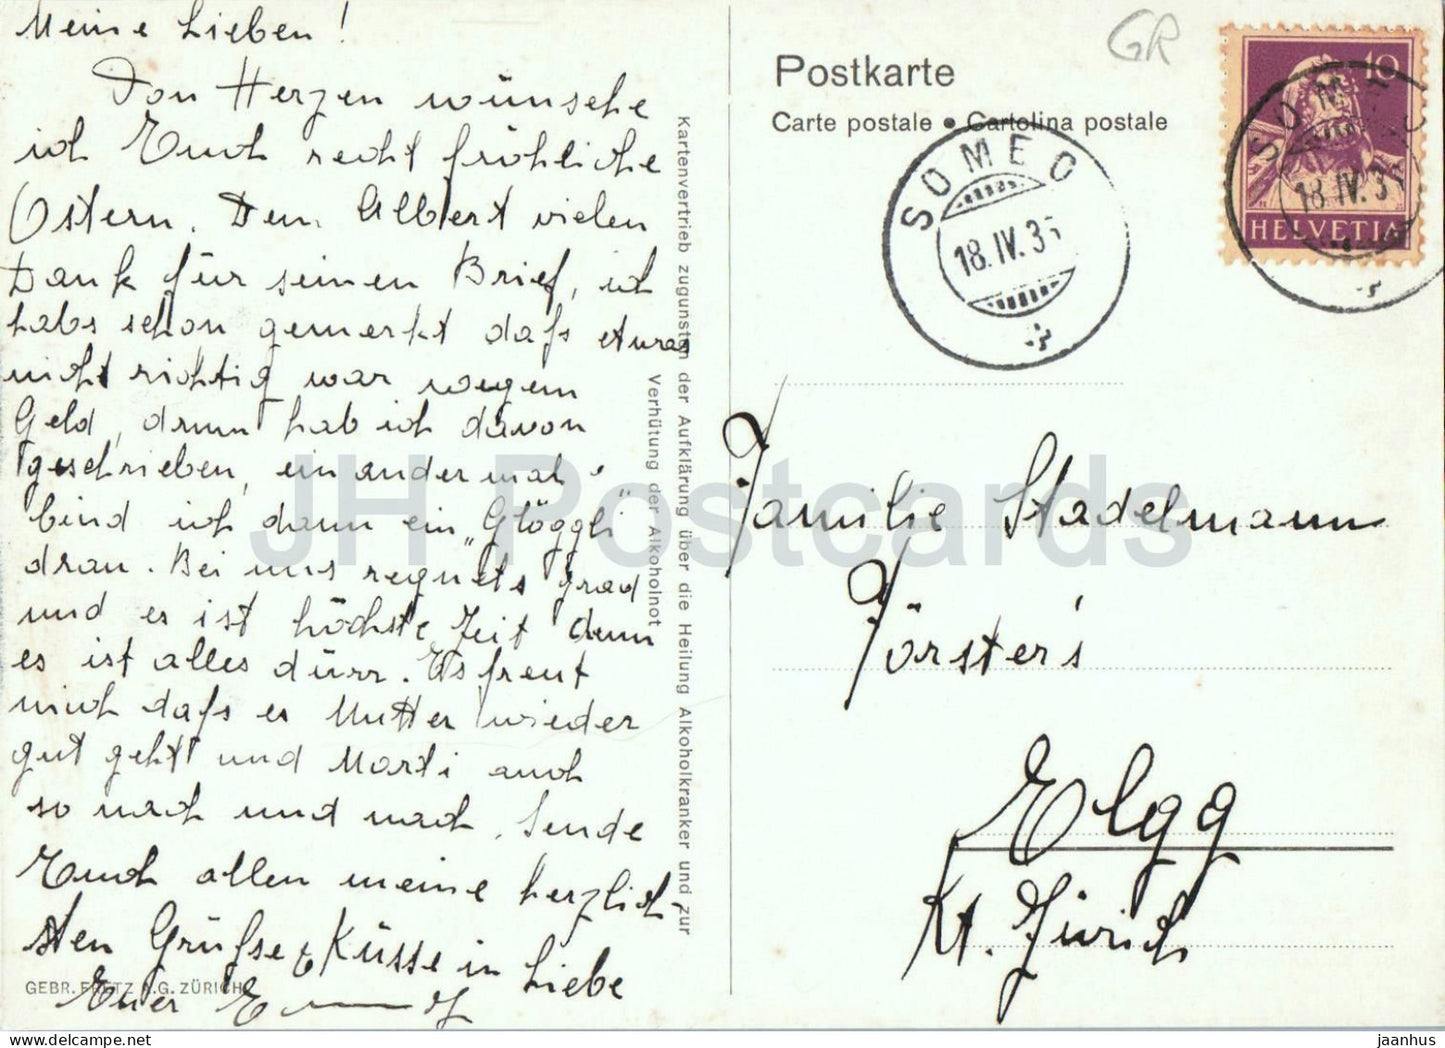 Meine Lieben!
Von Herzen wünsche
ich Euch recht fröhliche
Ostern. Dem Albert vielen
Dank für seinen Brief, ich
habs schon gemerkt dafs etwas
nicht richtig war wegem
Geld, drum hab ich davon
geschrieben, ein andermal
bind ich dann ein „Glöggli"
dran. Bei uns regnets grad
und es ist höchste Zeit denn
es ist alles dürr. Es freut
mich dafs es Mutter wieder
gut geht und Marti auch
so nach und nach. Sende
Euch allen meine herzlich-
sten Grüfse & Küsse in Liebe
Euer
GEBR. FRETZ A.G. ZÜRICH
Kartenvertrieb zugunsten der Aufklärung über die Heilung Alkoholkranker und zur
Verhütung der Alkoholnot
GR
Postkarte
Carte postale • Cartolina postale
SOMEO
18.IV.35
10
HELVETIA
SOMEO
18.IV.35
Familie Stadelmann
Förster's
Elgg
Kt. Zürich
JH Postcards
hippostcard.com
jaanhus